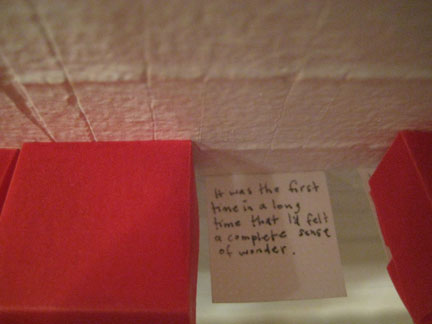 It was the first
time in a long
time that I'd felt
a complete sense
of wonder.